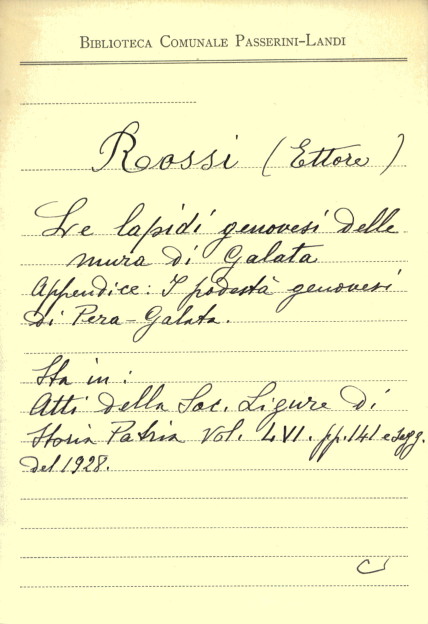 BIBLIOTECA COMUNALE PASSERINI-LANDI
Rossi (Ettore)
Le lapidi genovesi delle
mura di Galata
Appendice: I podestà genovesi
di Pera-Galata.
Sta in:
Atti della Soc. Ligure di
Storia Patria Vol. LVI. pp. 141 e segg.
del 1928.